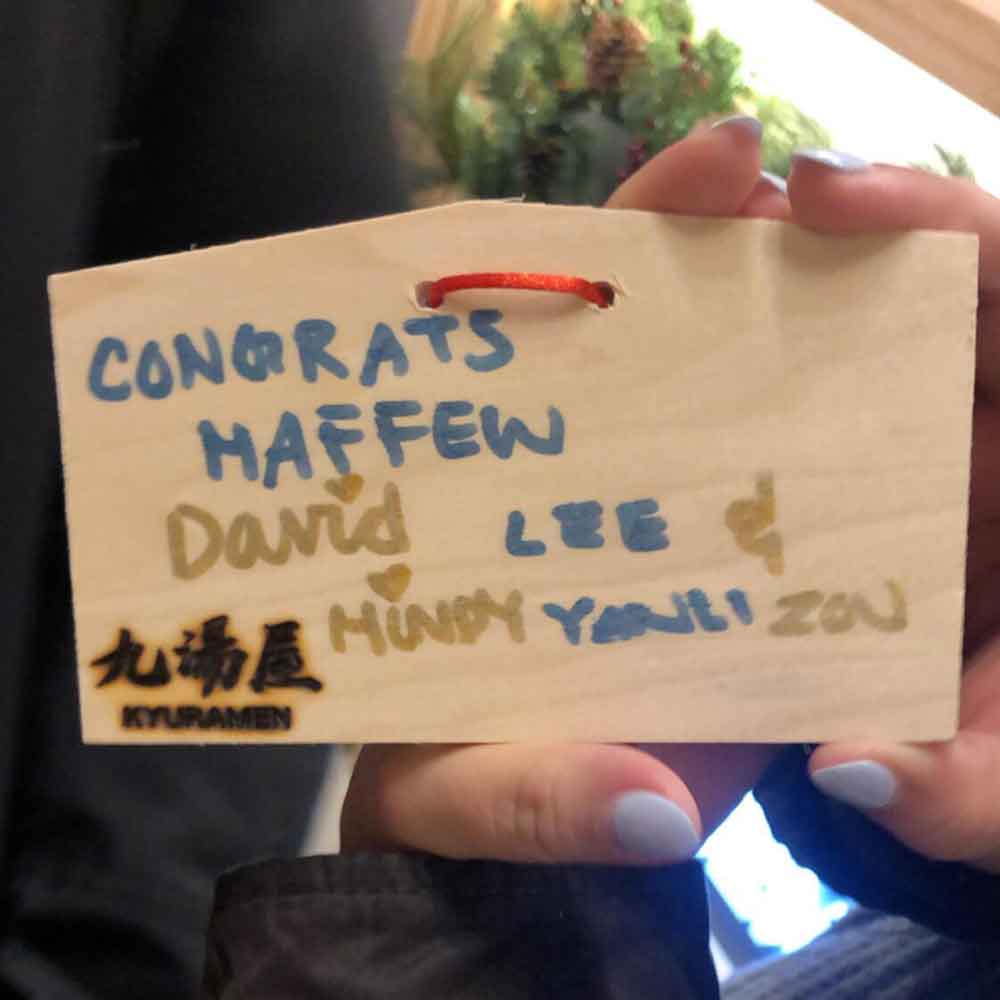 CONGRATS
MAFFEW
David LEE &
MINDY YANLI ZOU
九湯屋
KYURAMEN